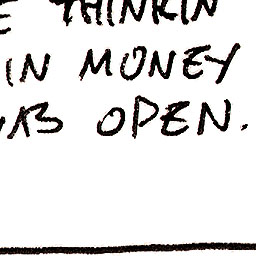 THINKIN
IN MONEY
OPEN.